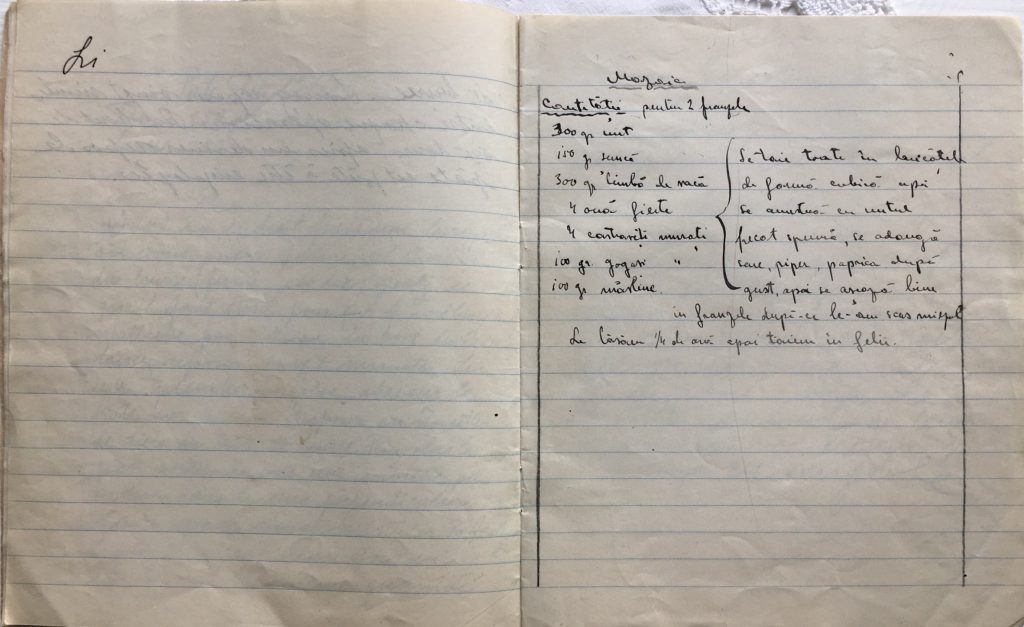 Li
Mozaic
Cantități pentru 2 franzele
300 gr unt
150 gr șuncă
300 gr limbă de vacă
4 ouă fierte
4 castraveți murati
100 gr. gogoși "
100 gr măsline.
Se taie toate în bucățele
de formă cubică apoi
se amestecă cu untul
fecat spumă, se adaugă
sare, piper, paprica după
gust, apoi se așează bine
in franzele după-ce le-am scos miezul
Le lăsăm 1/4 de oră apoi taiem in felii.